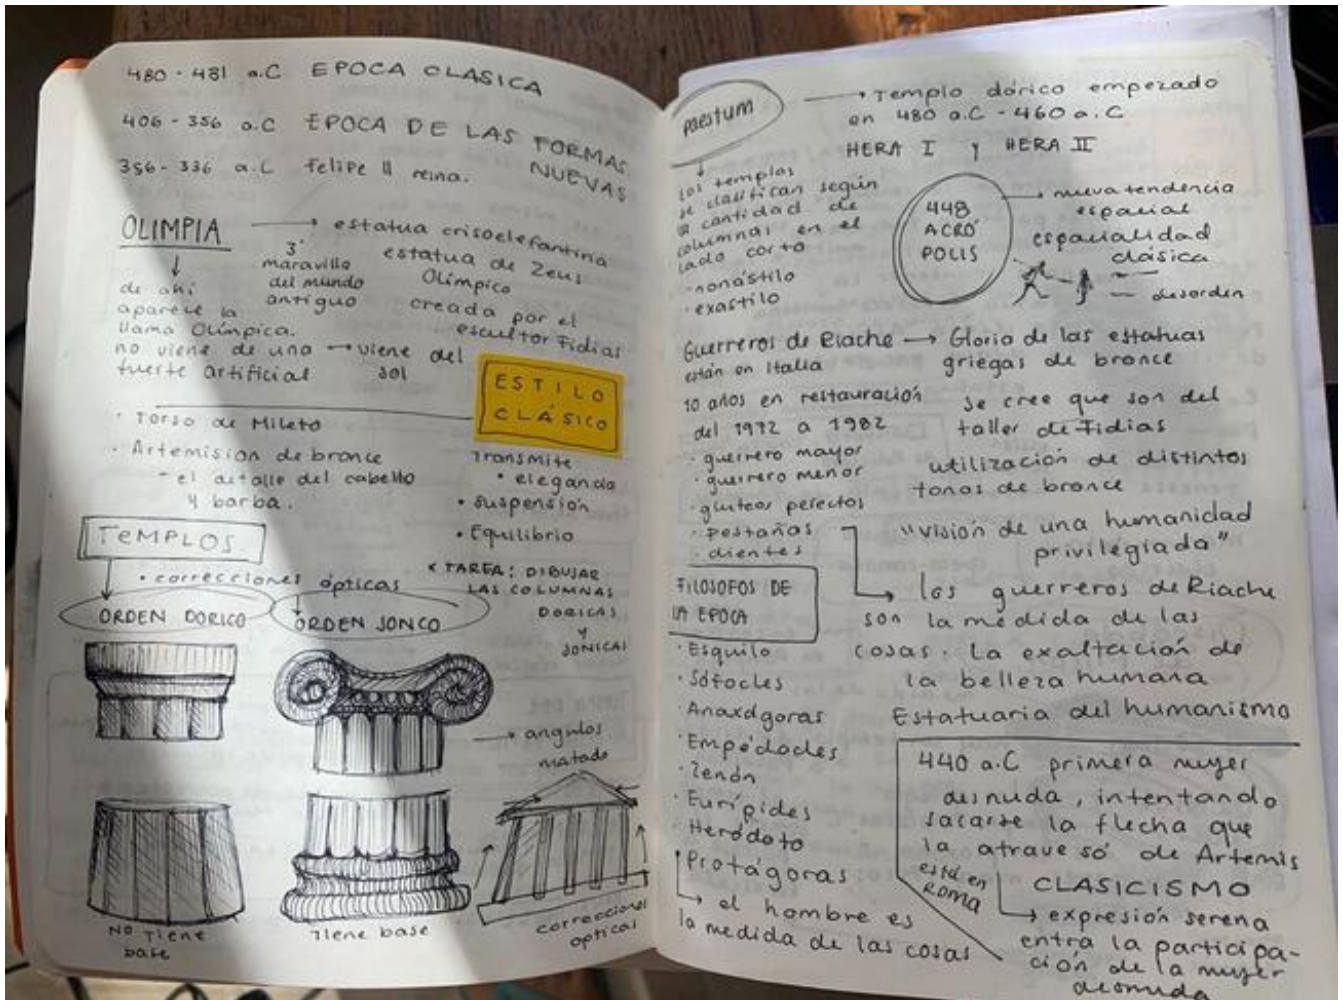 480 - 481 a.C EPOCA CLASICA
406 - 356 a.C EPOCA DE LAS FORMAS
NUEVAS
356 - 336 a.C Felipe II reina.
OLIMPIA → estatua crisoelefantina
estatua de Zeus
Olímpico
creada por el
escultor Fidias
3ª
maravilla
del mundo
antiguo
de ahí
aparece la
llama Olímpica.
no viene de una → viene del
fuerte artificial sol
ESTILO
CLÁSICO
Transmite
• elegancia
• suspensión
• Equilibrio
· Torso de Mileto
· Artemision de bronce
- el detalle del cabello
y barba.
TEMPLOS
• correcciones ópticas
* TAREA: DIBUJAR
LAS COLUMNAS
DORICAS
Y
JONICAS
ORDEN DORICO
ORDEN JONCO
→ angulos
matado
NO TIENE
base
Tiene base
correcciones
opticas
Paestum → Templo dórico empezado
en 480 a.C - 460 a.C
HERA I y HERA II
los templos
se clasifican según
la cantidad de
columnas en el
lado corto
· nonástilo
· exastilo
448
ACRÓ
POLIS
→ nueva tendencia
espacial
espacialidad
clásica
desorden
Guerreros de Riache → Gloria de las estatuas
están en Italia griegas de bronce
10 años en restauración
del 1972 a 1982
· guerrero mayor
· guerrero menor
· gluteos perectos
· pestañas
· dientes
se cree que son del
taller de Fidias
utilización de distintos
tonos de bronce
"visión de una humanidad
privilegiada"
→ los guerreros de Riache
son la medida de las
cosas. La exaltación de
la belleza humana
Estatuaria del humanismo
FILOSOFOS DE
LA EPOCA
· Esquilo
· Sófocles
· Anaxágoras
· Empédocles
· Zenón
· Eurípides
· Heródoto
Protágoras
→ el hombre es
la medida de las cosas
440 a.C primera mujer
desnuda, intentando
sacarse la flecha que
la atravesó de Artemis
está en
ROMA
CLASICISMO
→ expresión serena
entra la participa-
ción de la mujer
desnuda